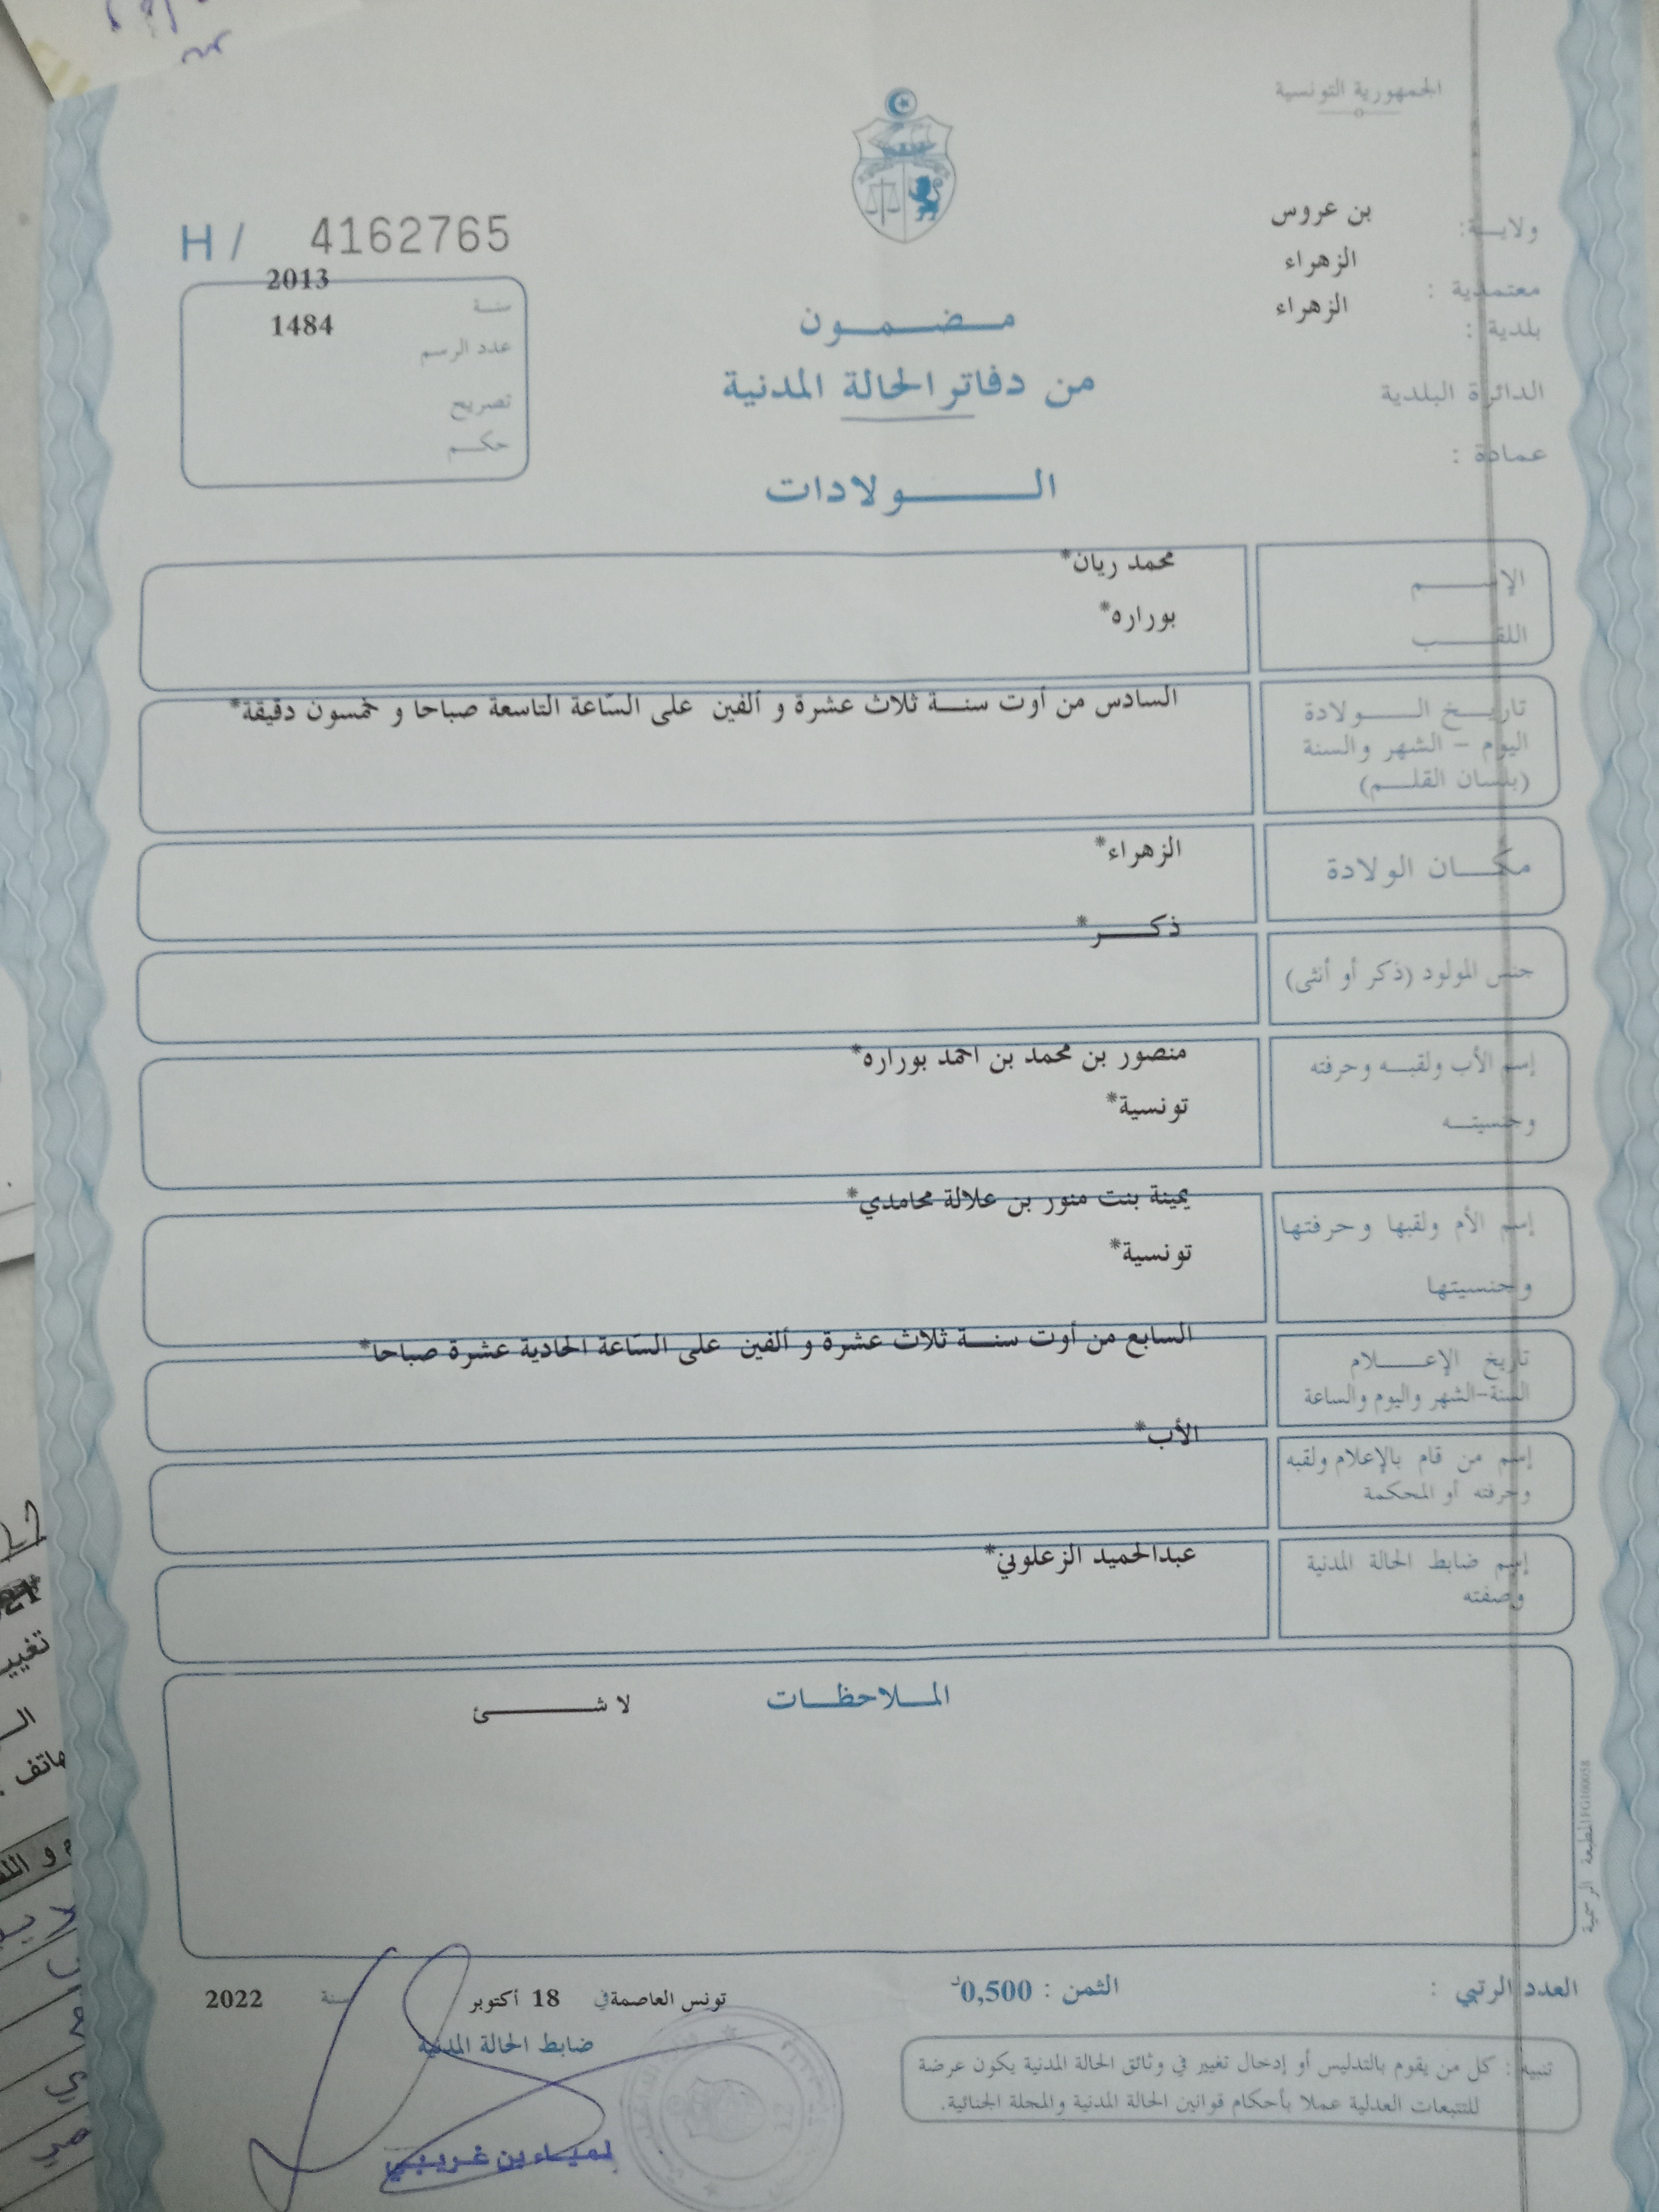 الجمهورية التونسية
ولايـــة: بن عروس
معتمدية : الزهراء
بلدية : الزهراء
الدائرة البلدية
عمادة :
H / 4162765
سنـة 2013
عدد الرسم 1484
تصريح
حكـــم
مـــضـــمـــون
من دفاتر الحالة المدنية
الـــــــولادات
الإســـــم محمد ريان*
اللقـــــب بوراره*
تاريـــخ الـــــولادة السادس من أوت سنـــة ثلاث عشرة و ألفين على السّاعة التاسعة صباحا و خمسون دقيقة*
اليوم – الشهر والسنة
(بلسان القلـــم)
مكـــان الولادة الزهراء*
جنس المولود (ذكر أو أنثى) ذكـــــر*
إسم الأب ولقبـــه وحرفته منصور بن محمد بن احمد بوراره*
وجنسيتـــه تونسية*
إسم الأم ولقبها وحرفتها يمينة بنت منور بن علالة محامدي*
وجنسيتها تونسية*
تاريخ الإعـــــلام السابع من أوت سنـــة ثلاث عشرة و ألفين على السّاعة الحادية عشرة صباحا*
السنة-الشهر واليوم والساعة
إسم من قام بالإعلام ولقبه الأب*
وحرفته أو المحكمة
إسم ضابط الحالة المدنية عبدالحميد الزعلوني*
وصفته
المـــلاحظـــات لا شـــــــئ
المطبعة الرسمية
العدد الرتبي :
الثمن : 0,500د
تونس العاصمة في 18 أكتوبر سنة 2022
ضابط الحالة المدنية
تنبيه : كل من يقوم بالتدليس أو إدخال تغيير في وثائق الحالة المدنية يكون عرضة
للتتبعات العدلية عملا بأحكام قوانين الحالة المدنية والمجلة الجنائية.
لميـاء بن غـريبـي
تغيير
هاتف